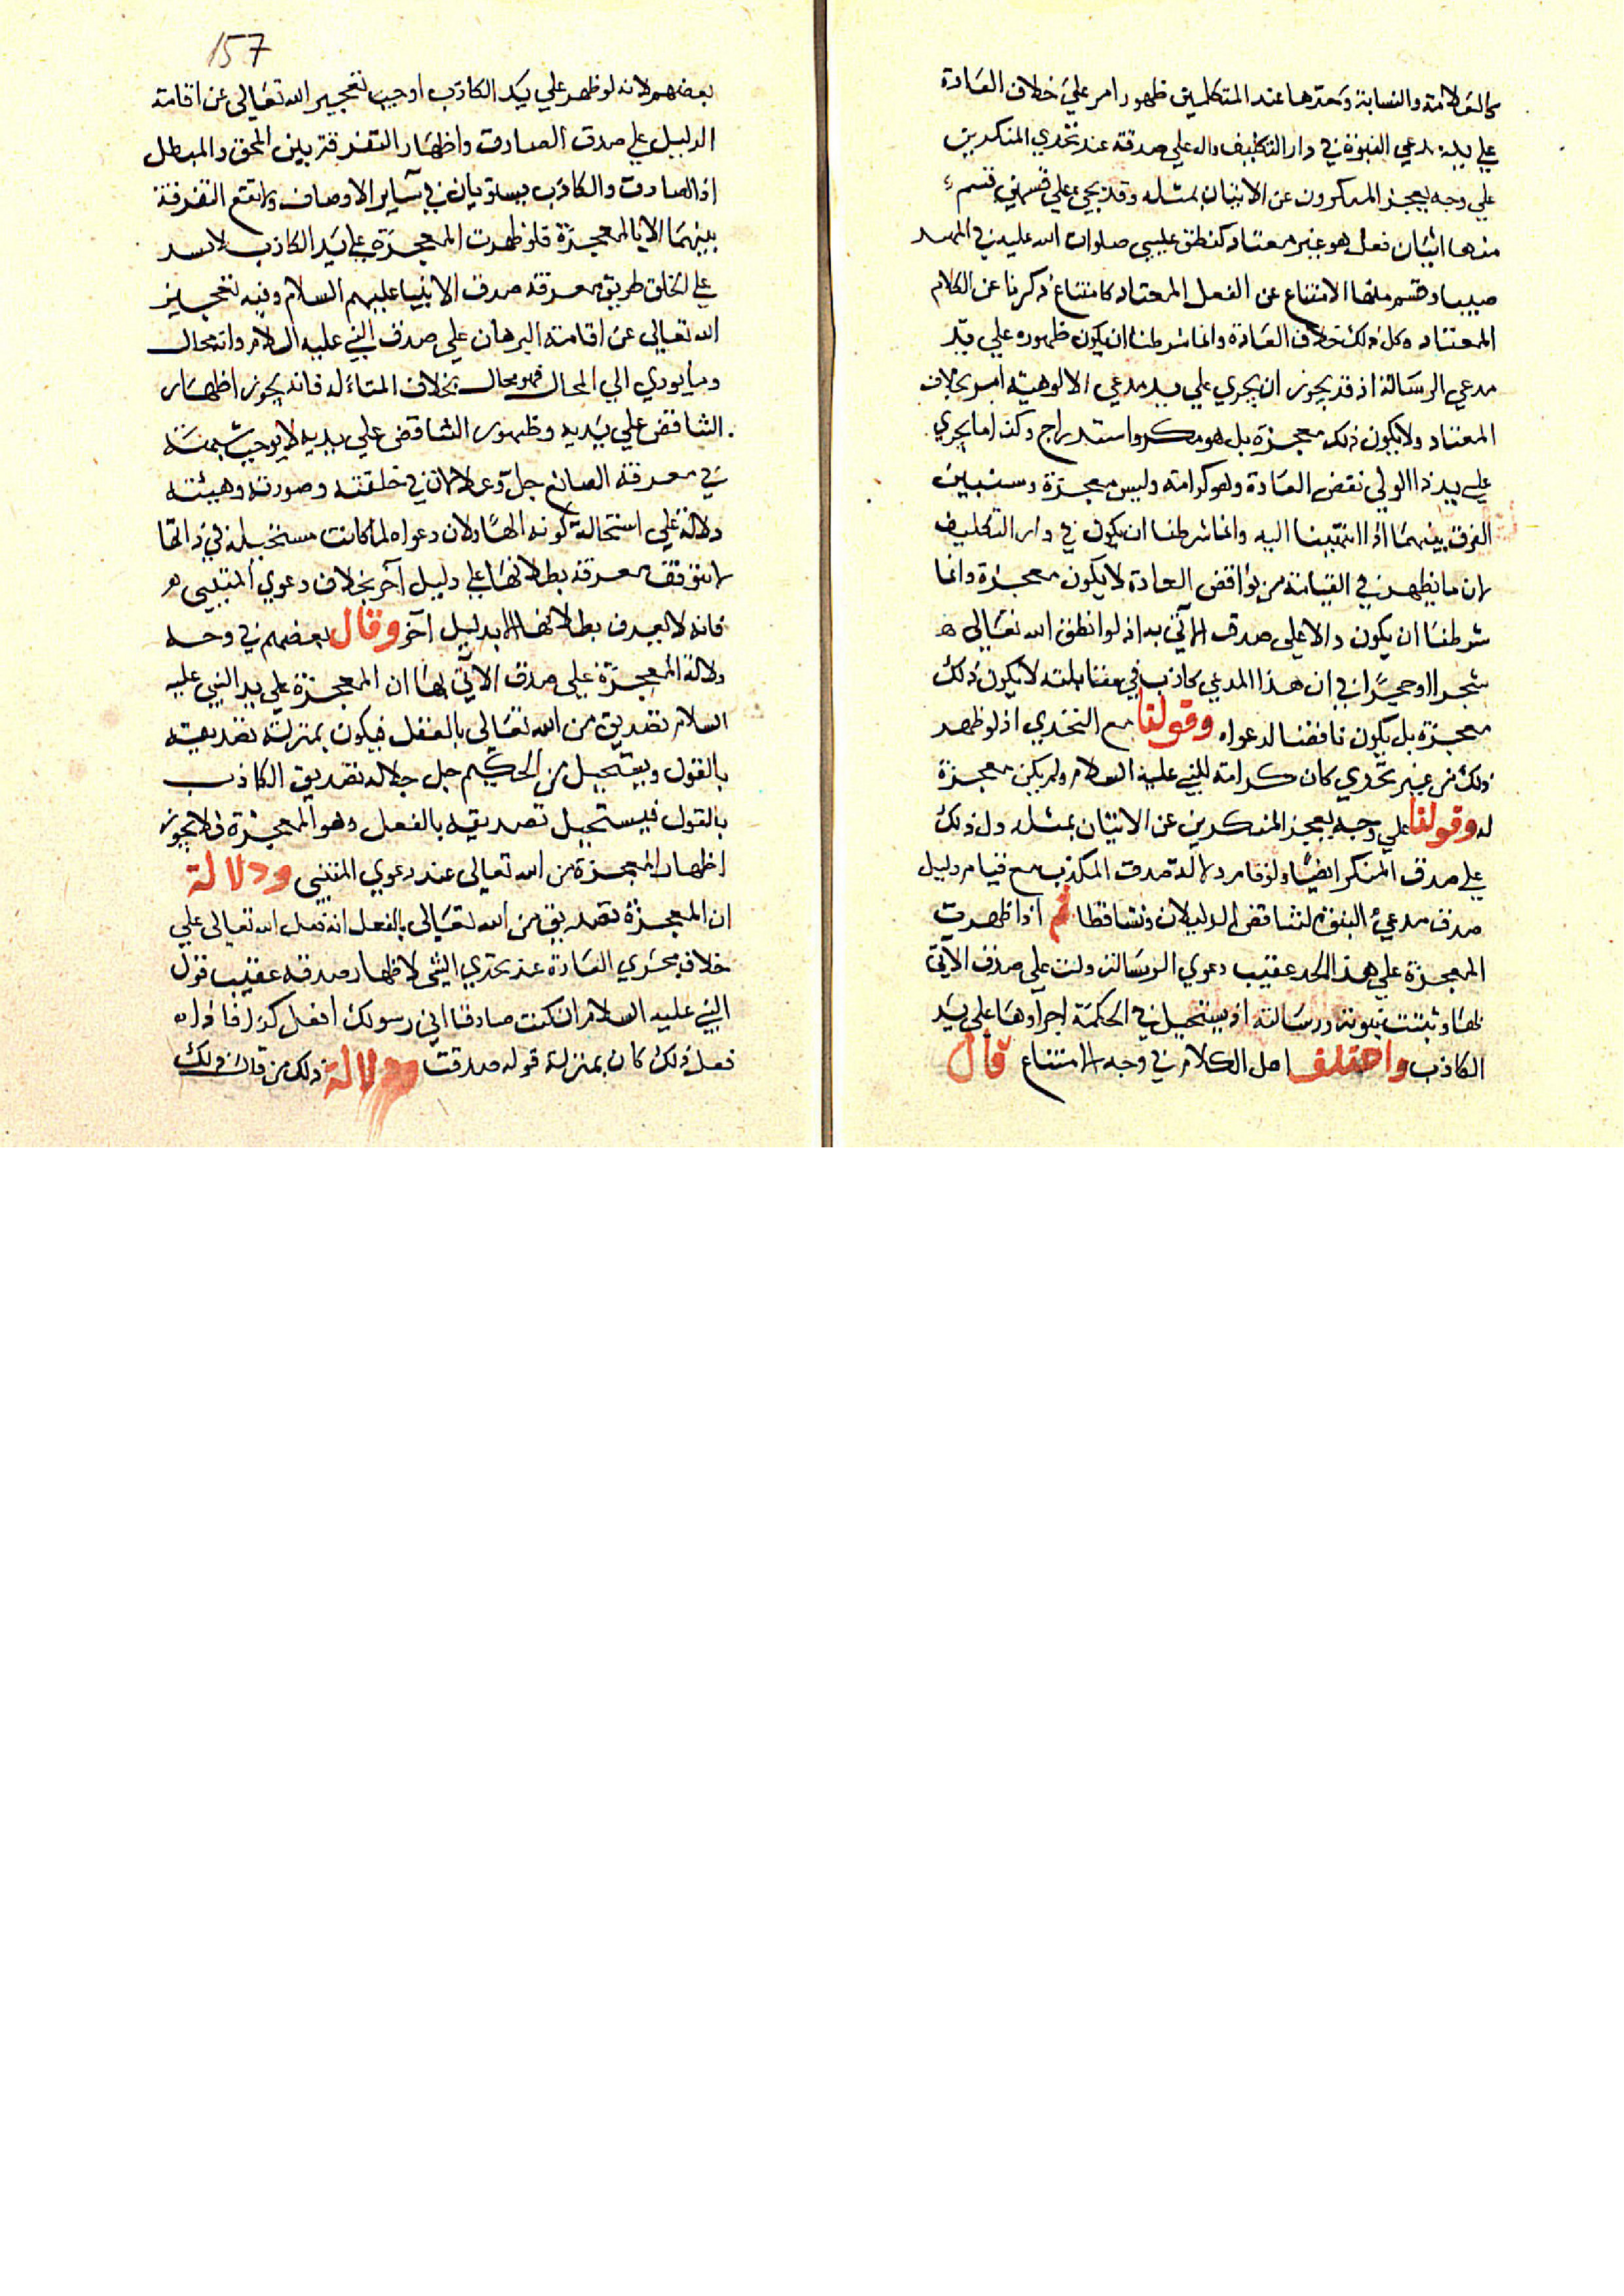 كالعلامة والنسابة وحدها عند المتكلمين ظهور امر علي خلاف العادة
علي يد مدعي النبوة في دار التكليف دال علي صدقه عند تحدي المنكرين
علي وجه يعجز المنكرون عن الاتيان بمثله وقد يجيء علي قسمين قسم
منها اتيان فعل هو غير معتاد كنطق عيسي صلوات الله عليه في المهد
صبيا وقسم منها الامتناع عن الفعل المعتاد كامتناع ذكريا عن الكلام
المعتاد وكل ذلك خلاف العادة وانما شرطنا ان يكون ظهوره علي يد
مدعي الرسالة اذ قد يجوز ان يجري علي يد مدعي الالوهية امر بخلاف
المعتاد ولا يكون ذلك معجزة بل هو مكر واستدراج وكذا ما يجري
علي يد الولي نقض العادة وهو كرامة وليس معجزة وسنبين
الفرق بينهما اذا انتهينا اليه وانما شرطنا ان يكون في دار التكليف
لان ما يظهر في القيامة من نواقض العادة لا يكون معجزة وانما
شرطنا ان يكون دالا علي صدق الآتي به اذ لو انطق الله تعالي
شجرا او حجرا في ان هذا المدعي كاذب في مقالته لا يكون ذلك
معجزة بل يكون ناقضا لدعواه وقولنا مع التحدي اذ لو ظهر
ذلك من غير تحدي كان كرامة للنبي عليه السلام ولم يكن معجزة
له وقولنا علي وجه يعجز المنكرين عن الاتيان بمثله دل ذلك
علي صدق المنكر ايضا ولو قام دلالة صدق المكذب مع قيام دليل
صدق مدعي النبوة لتناقض الدليلان وتساقطا ثم اذا ظهرت
المعجزة علي هذا الحد عقيب دعوي الرسالة دلت علي صدق الآتي
بها وثبتت نبوته ورسالته اذ يستحيل في الحكمة اجراوها علي يد
الكاذب واختلف اهل الكلام في وجه الامتناع قال
157
بعضهم لانه لو ظهر علي يد الكاذب اوجب تعجيز الله تعالي عن اقامة
الدليل علي صدق الصادق واظهار التفرقة بين المحق والمبطل
اذ الصادق والكاذب يستويان في سائر الاوصاف ولا تقع التفرقة
بينهما الا بالمعجزة فلو ظهرت المعجزة علي يد الكاذب لانسد
علي الخلق طريق معرفة صدق الانبيا عليهم السلام وفيه تعجيز
الله تعالي عن اقامة البرهان علي صدق النبي عليه السلام وانه محال
وما يودي الي المحال فهو محال بخلاف المتاله فانه يجوز اظهار
الناقض علي يديه وظهور الناقض علي يديه لا يوجب شبهة
في معرفة الصانع جل وعلا لان في خلقته وصورته وهيئته
دلالة علي استحالة كونه الها ولان دعواه لما كانت مستحيلة في ذاتها
لا تتوقف معرفة بطلانها علي دليل آخر بخلاف دعوي المتنبي
فانه لا يعرف بطلانها الا بدليل آخر وقال بعضهم في وجه
دلالة المعجزة علي صدق الآتي بها ان المعجزة علي يد النبي عليه
السلام تصديق من الله تعالي بالفعل فيكون بمنزلة تصديقه
بالقول ويستحيل من الحكيم جل جلاله تصديق الكاذب
بالقول فيستحيل تصديقه بالفعل وهو المعجزة فلا يجوز
اظهار المعجزة من الله تعالي عند دعوي المتنبي ودلالة
ان المعجزة تصديق من الله تعالي بالفعل انه فعل الله تعالي علي
خلاف مجري العادة عند تحدي النبي لاظهار صدقه عقيب قول
النبي عليه السلام ان كنت صادقا اني رسولك افعل كذا فاذا
فعل ذلك كان بمنزلة قوله صدقت ودلالة ذلك من قال ذلك